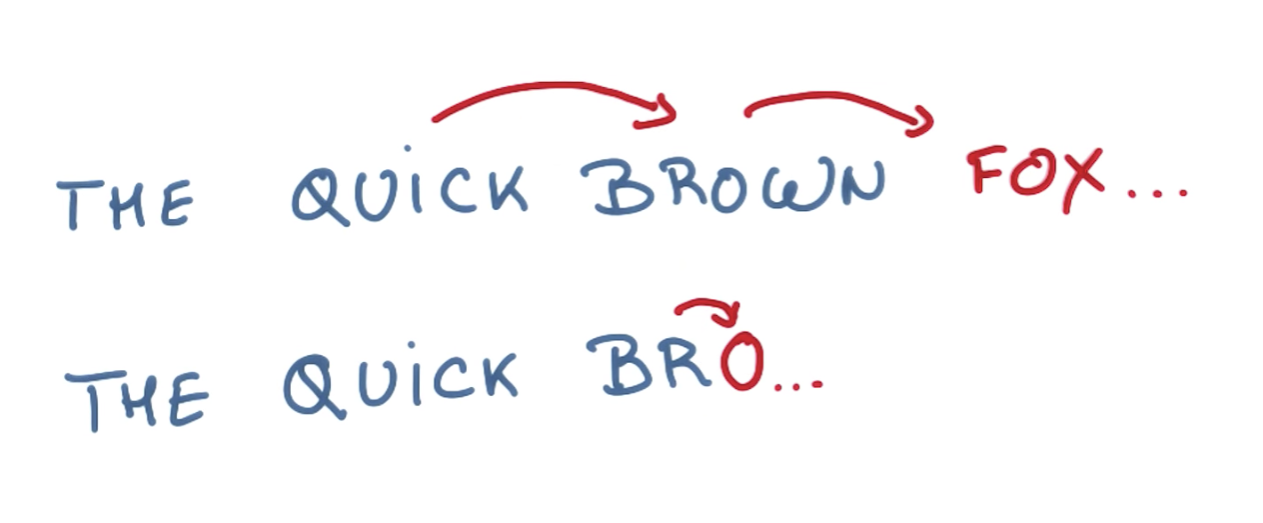 THE QUiCK BROWN FOX...
THE QUiCK BRO...